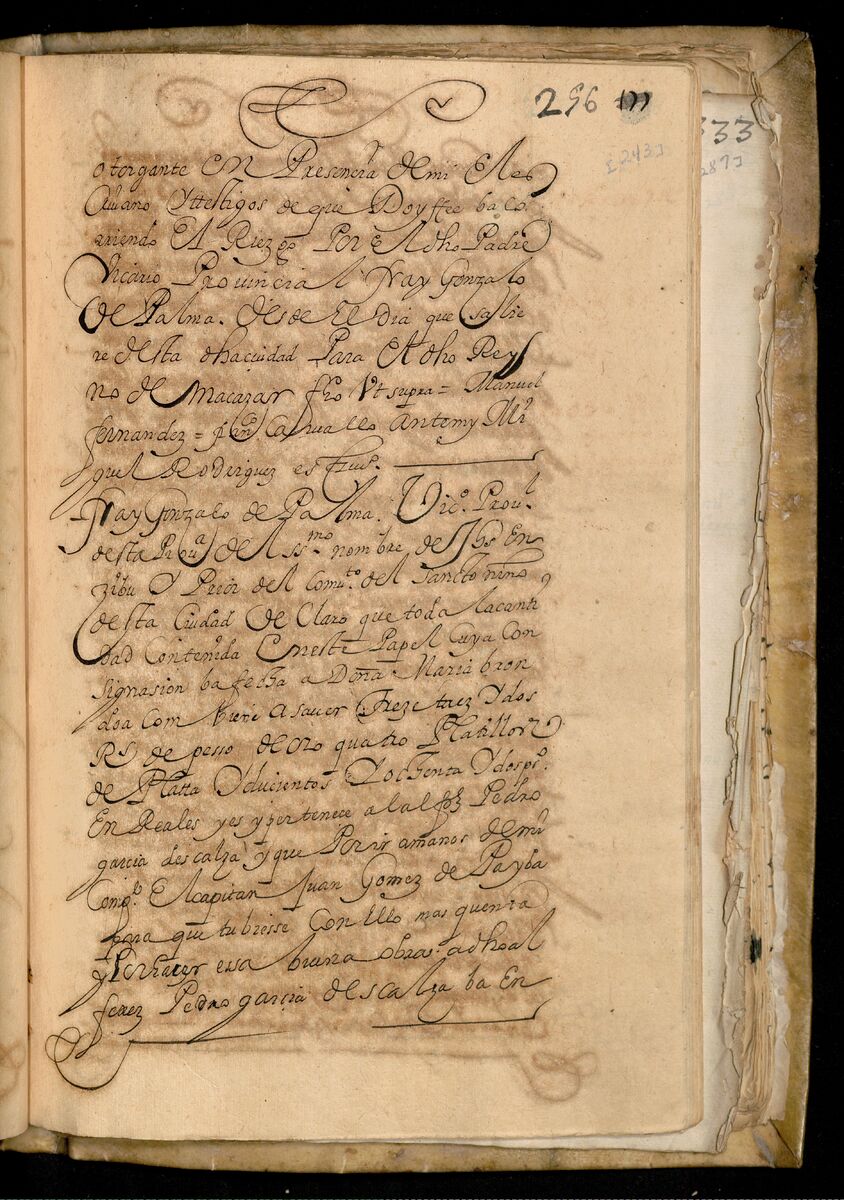 296
333
[243]
289]
otorgante en Presencia de mi el es
criuano y ttestigos de que Doy ffee ba co
rriendo el Riezgo Por el dho Padre
Vicario Prouincial fray Gonzalo
de Palma. desde el dia que salie
re desta dha ciudad Para el dho Rey
no de Macazar ffho Vt supra = Manuel
fernandez = Juan Caruallo Antemy Mi
guel Rodriguez es Criuo.
fray Gonzalo de Palma. Vico. Proul
desta Proua del ssmo nombre de Jhs En
zibu y Prior del Comuto. del Sancto nino
desta Ciudad De Claro que toda la canti
dad Contenida En este Papel Cuya Con
signasion ba fecha a Doña Maria bron
doa Com biene a sauer treze taez y dos
Rs de pesso de oro quatro Platillos
de Platta y ducientos y ochenta y dos ps.
En Reales y es y pertenece al alfz Pedro
garcia descalza y que Por ir a manos de mi
Compe. El capitan Juan Gomez de Payba
para que tubiesse con ello mas quenta
y Por hacer essa buena obra a dho al
ferez Pedro garcia descalza ba En